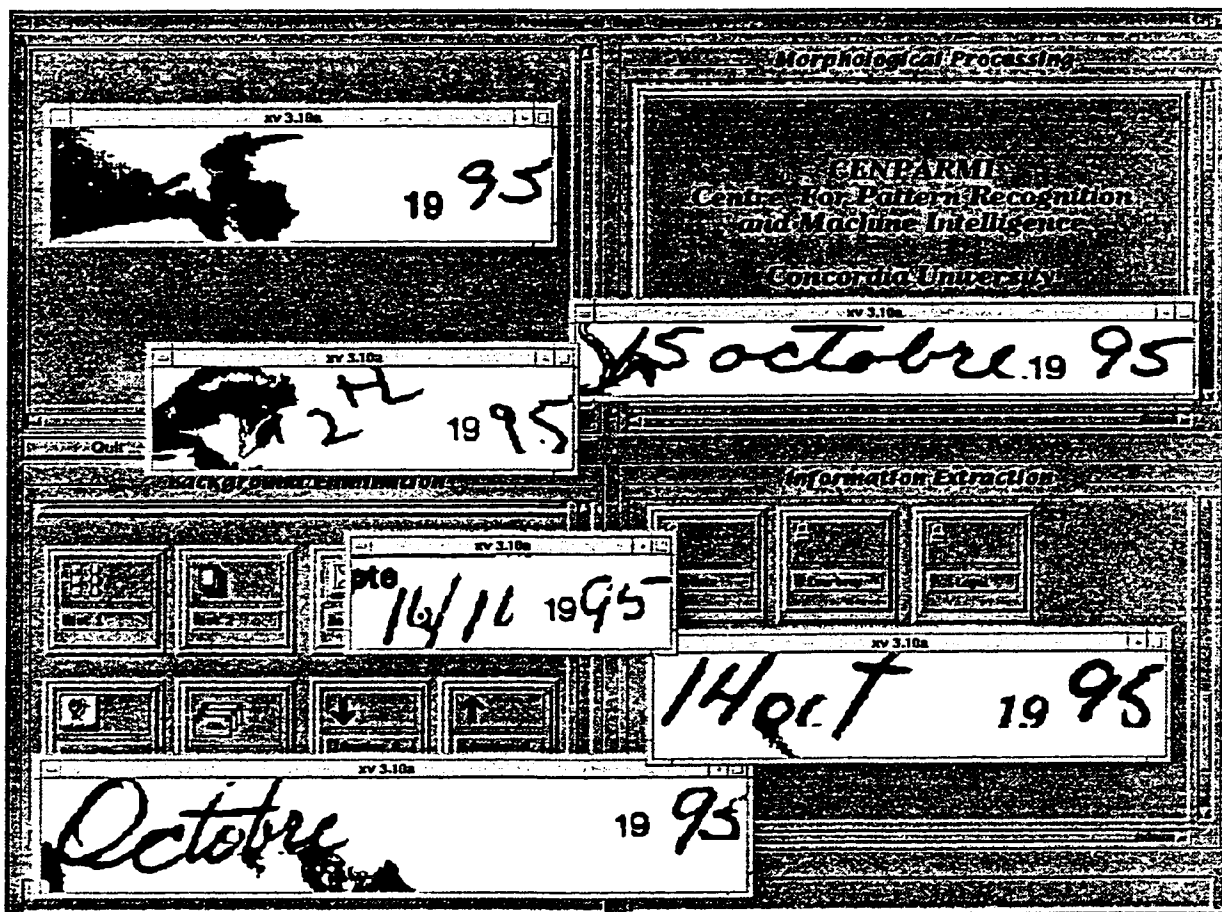 Morphological Processing
xv 3.10a
19 95
CENPARMI
Centre For Pattern Recognition
and Machine Intelligence
Concordia University
xv 3.10a
15 octobre 19 95
xv 3.10a
2 19 95
Quit
Background Elimination
Information Extraction
xv 3.10a
pte
16/11 1995
xv 3.10a
14 oct 19 95
xv 3.10a
Octobre 19 95